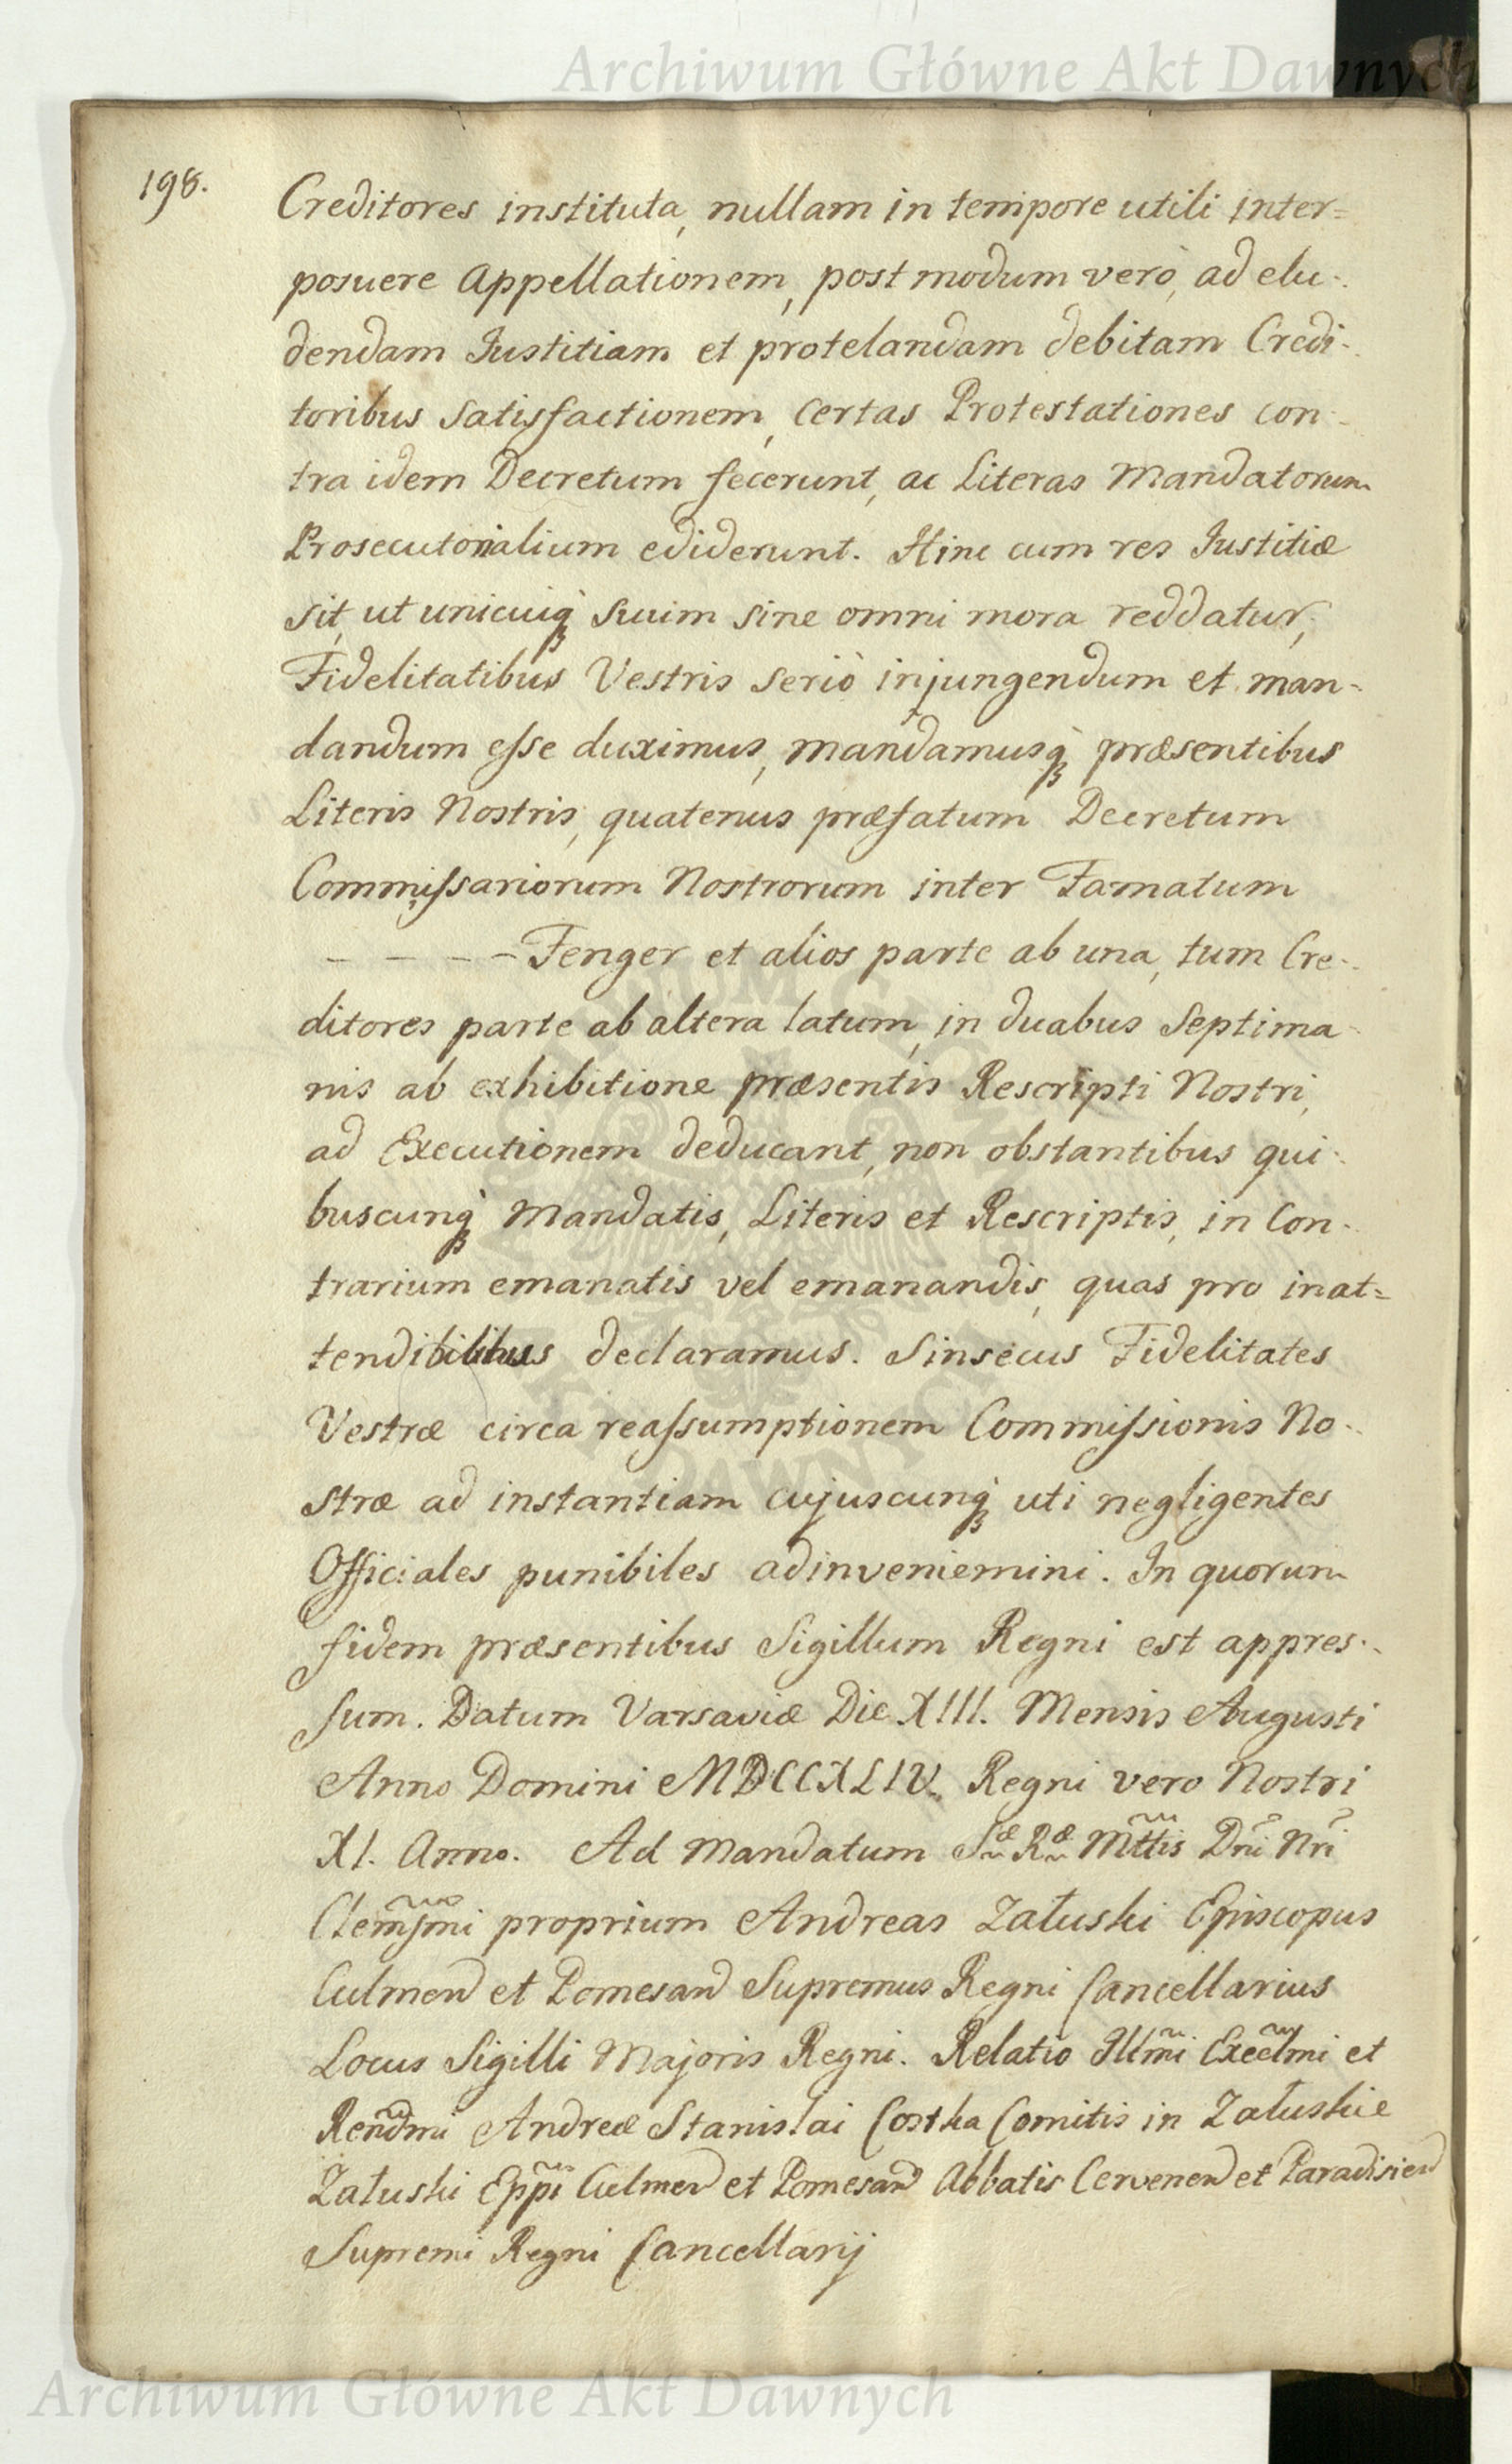 Archiwum Główne Akt Dawnych
198.
Creditores instituta, nullam in tempore utili inter=
posuere Appellationem, post modum verò, ad elu-
dendam Justitiam et protelandam debitam Credi-
toribus Satisfactionem, certas Protestationes con-
tra idem Decretum fecerunt, ac Literas Mandatorum
Prosecutorialium ediderunt. Hinc cum res Justitiæ
sit, ut unicuiq́ȝ Suum sine omni mora reddatur,
Fidelitatibus Vestris seriò injungendum et man-
dandum esse duximus, mandamusq́ȝ præsentibus
Literis Nostris, quatenus præfatum Decretum
Commissariorum Nostrorum inter Famatum
- - - - - Fenger et alios parte ab una, tum Cre-
ditores parte ab altera latum, in duabus Septima-
nis ab exhibitione præsentis Rescripti Nostri,
ad Executionem deducant, non obstantibus qui-
buscunq́ȝ Mandatis, Literis et Rescriptis, in Con-
trarium emanatis vel emanandis, quas pro inat=
tendibilibus declaramus. Sinsecus Fidelitates
Vestræ circa reassumptionem Commissionis No-
stræ ad instantiam cujuscunq́ȝ uti negligentes
Officiales punibiles adinveniemini. In quorum
fidem præsentibus Sigillum Regni est appres-
sum. Datum Varsaviæ Die XIII. Mensis Augusti
Anno Domini MDCCXLIV. Regni vero Nostri
XI. Anno. Ad Mandatum Sæ Ræ Mttis Dni Nri
Clemsmi proprium Andreas Załuski Episcopus
Culmen et Pomesan Supremus Regni Cancellarius
Locus Sigilli Majoris Regni. Relatio Illmi Excelmi et
Rendmi Andreæ Stanislai Costka Comitis in Załuskie
Załuski Eppi Culmen et Pomesan Abbatis Cervenen et Paradisien
Supremi Regni Cancellarij
Archiwum Główne Akt Dawnych